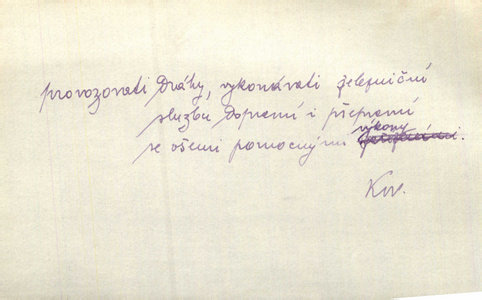 provozovati Dráhy, vykonávati železniční
službu dopravní i přepravní
se všemi pomocnými výkony.
Kov.